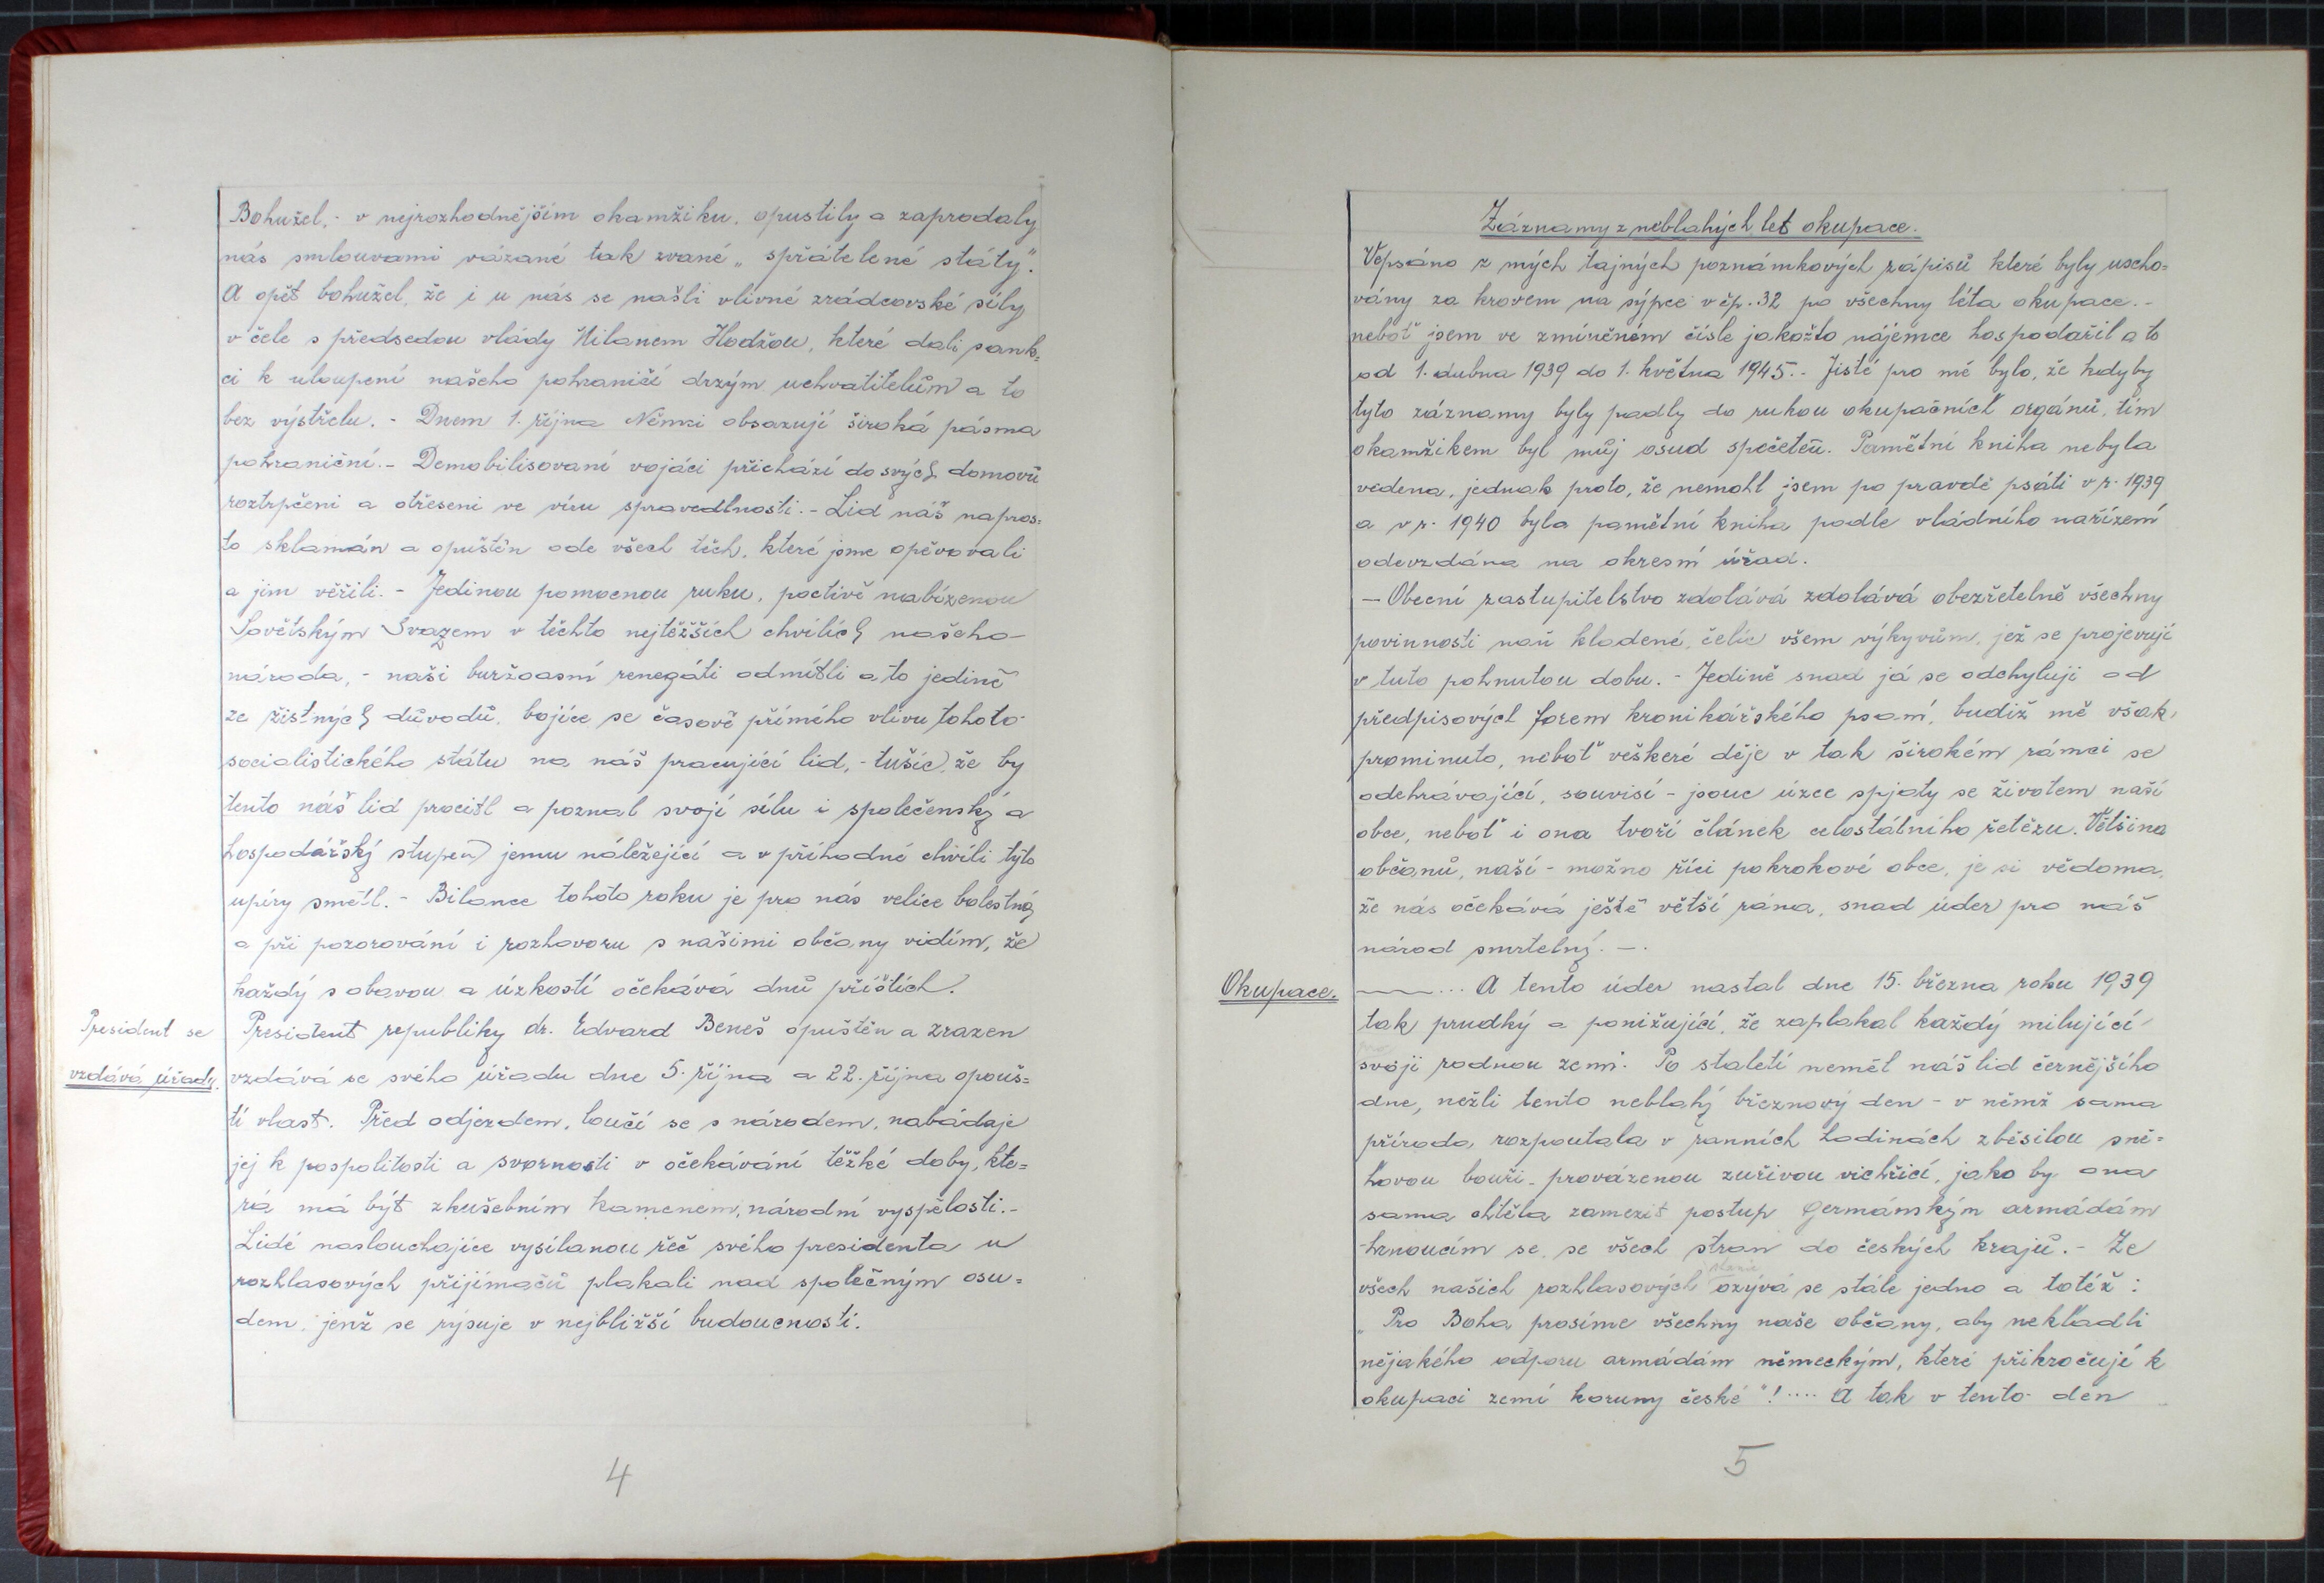 Bohužel, - v nejrozhodnějším okamžiku, opustily a zaprodaly
nás smlouvami vázané tak zvané „ spřátelené státy".
A opět bohužel, že i u nás se našli vlivné zrádcovské síly
v čele s předsedou vlády Milanem Hodžou, které dali sank=
ci k uloupení našeho pohraničí drzým uchvatitelům a to
bez výstřelu. - Dnem 1. října Němci obsazují široká pásma
pohraniční. - Demobilisovaní vojáci přichází do svých domovů
roztrpčeni a otřeseni ve víru spravedlnosti. - Lid náš napros=
to sklamán a opuštěn ode všech těch, které jsme opěvovali
a jim věřili. - Jedinou pomocnou ruku, poctivě nabízenou
Sovětským Svazem v těchto nejtěžších chvílích našeho
národa, - naši buržoasní renegáti odmítli a to jedině
ze zištných důvodů, bojíce se časově přímého vlivu tohoto
socialistického státu na náš pracující lid, - tušíc, že by
tento náš lid procitl a poznal svojí sílu i společenský a
hospodářský stupeň jemu náležející a v příhodné chvíli tyto
upíry smetl. - Bilance tohoto roku je pro nás velice bolestná,
a při pozorování i rozhovoru s našimi občany vidím, že
každý s obavou a úzkostí očekává dnů příštích.
President se
vzdává úřadu.
President republiky dr. Edvard Beneš opuštěn a zrazen
vzdává se svého úřadu dne 5. října a 22. října opouš=
tí vlast. Před odjezdem, loučí se s národem, nabádaje
jej k pospolitosti a svornosti v očekávání těžké doby, kte=
rá má být zkušebním kamenem, národní vyspělosti. -
Lidé naslouchajíce vysílanou řeč svého presidenta u
rozhlasových přijímačů plakali nad společným osu=
dem, jenž se rýsuje v nejbližší budoucnosti.
4
Záznamy z neblahých let okupace.
Vepsáno z mých tajných poznámkových zápisů které byly uscho=
vány za krovem na sýpce v čp. 32 po všechny léta okupace. -
neboť jsem ve zmíněném čísle jakožto nájemce hospodařil a to
od 1. dubna 1939 do 1. května 1945. - Jisté pro mě bylo, že kdyby
tyto záznamy byly padly do rukou okupačních orgánů, tím
okamžikem byl můj osud spečetěn. Pamětní kniha nebyla
vedena, jednak proto, že nemohl jsem po pravdě psáti v r. 1939
a v r. 1940 byla pamětní kniha podle vládního nařízení
odevzdána na okresní úřad.
- Obecní zastupitelstvo zdolává zdolává obezřetelně všechny
povinnosti naň kladené, čelíc všem výkyvům, jež se projevují
v tuto pohnutou dobu. - Jedině snad já se odchyluji od
předpisových forem kronikářského psaní, budiž mě však
prominuto, neboť veškeré děje v tak širokém rámci se
odehrávající, souvisí - jsouc úzce spjaty se životem naší
obce, neboť i ona tvoří článek celostátního řetězu. Většina
občanů, naší - možno říci pokrokové obce, je si vědoma,
že nás očekává ještě větší rána, snad úder pro náš
národ smrtelný. -.
Okupace.
... A tento úder nastal dne 15. března roku 1939
tak prudký a ponižující, že zaplakal každý milující
svoji rodnou zemi. Po staletí neměl náš lid černějšího
dne, nežli tento neblahý březnový den - v němž sama
příroda rozpoutala v ranních hodinách zběsilou sně=
hovou bouři - provázenou zuřivou vichřicí, jako by ona
sama chtěla zamezit postup Germánským armádám
hrnoucím se, se všech stran do českých krajů. - Ze
všech našich rozhlasových stanic ozývá se stále jedno a totéž :
„ Pro Boha prosíme všechny naše občany, aby nekladli
nějakého odporu armádám německým, které přikročují k
okupaci zemí koruny české "! .... A tak v tento den
5